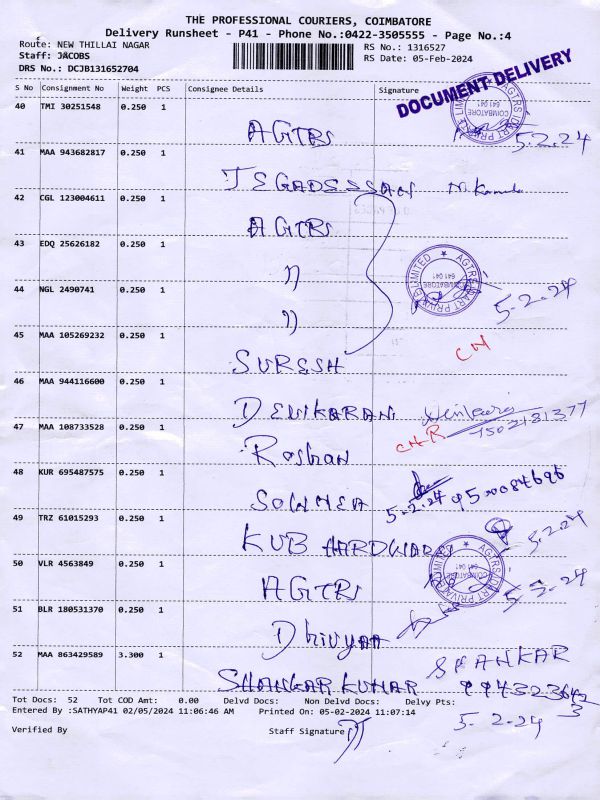 THE PROFESSIONAL COURIERS, COIMBATORE
Delivery Runsheet - P41 - Phone No.:0422-3505555 - Page No.:4
Route: NEW THILLAI NAGAR RS No.: 1316527
Staff: JACOBS RS Date: 05-Feb-2024
DRS No.: DCJB131652704
DOCUMENT DELIVERY
S No Consignment No Weight PCS Consignee Details Signature
40 TMI 30251548 0.250 1 AGTRS 5.2.24
41 MAA 943682817 0.250 1
42 CGL 123004611 0.250 1 AGTRS
43 EDQ 25626182 0.250 1 "
44 NGL 2490741 0.250 1 " 5-2-24
45 MAA 105269232 0.250 1 SURESH CN
46 MAA 944116600 0.250 1 DEVIKARAN
47 MAA 108733528 0.250 1 Roshan CNR
48 KUR 695487575 0.250 1 5-2-24
49 TRZ 61015293 0.250 1 KUB HARDWARES 5-2-24
50 VLR 4563849 0.250 1 AGTRS 5-2-24
51 BLR 180531370 0.250 1 Dhivyaa
52 MAA 863429589 3.300 1 SHANKAR KUMAR SHANKAR
5-2-24
Tot Docs: 52 Tot COD Amt: 0.00 Delvd Docs: Non Delvd Docs: Delvy Pts:
Entered By :SATHYAP41 02/05/2024 11:06:46 AM Printed On: 05-02-2024 11:07:14
Verified By Staff Signature